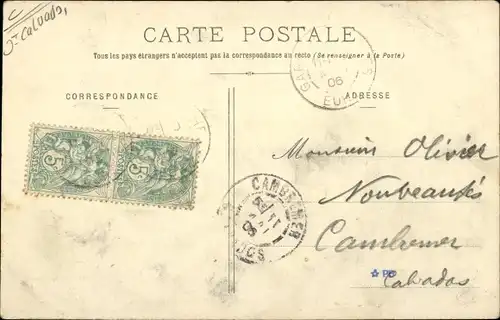 Calvados
CARTE POSTALE
Tous les pays étrangers n'acceptent pas la correspondance au recto (Se renseigner à la Poste)
CORRESPONDANCE
ADRESSE
GA
06
EURE
5 5
Monsieur Olivier
Nouveautés
CAMBREMER
Cambremer
Calvados